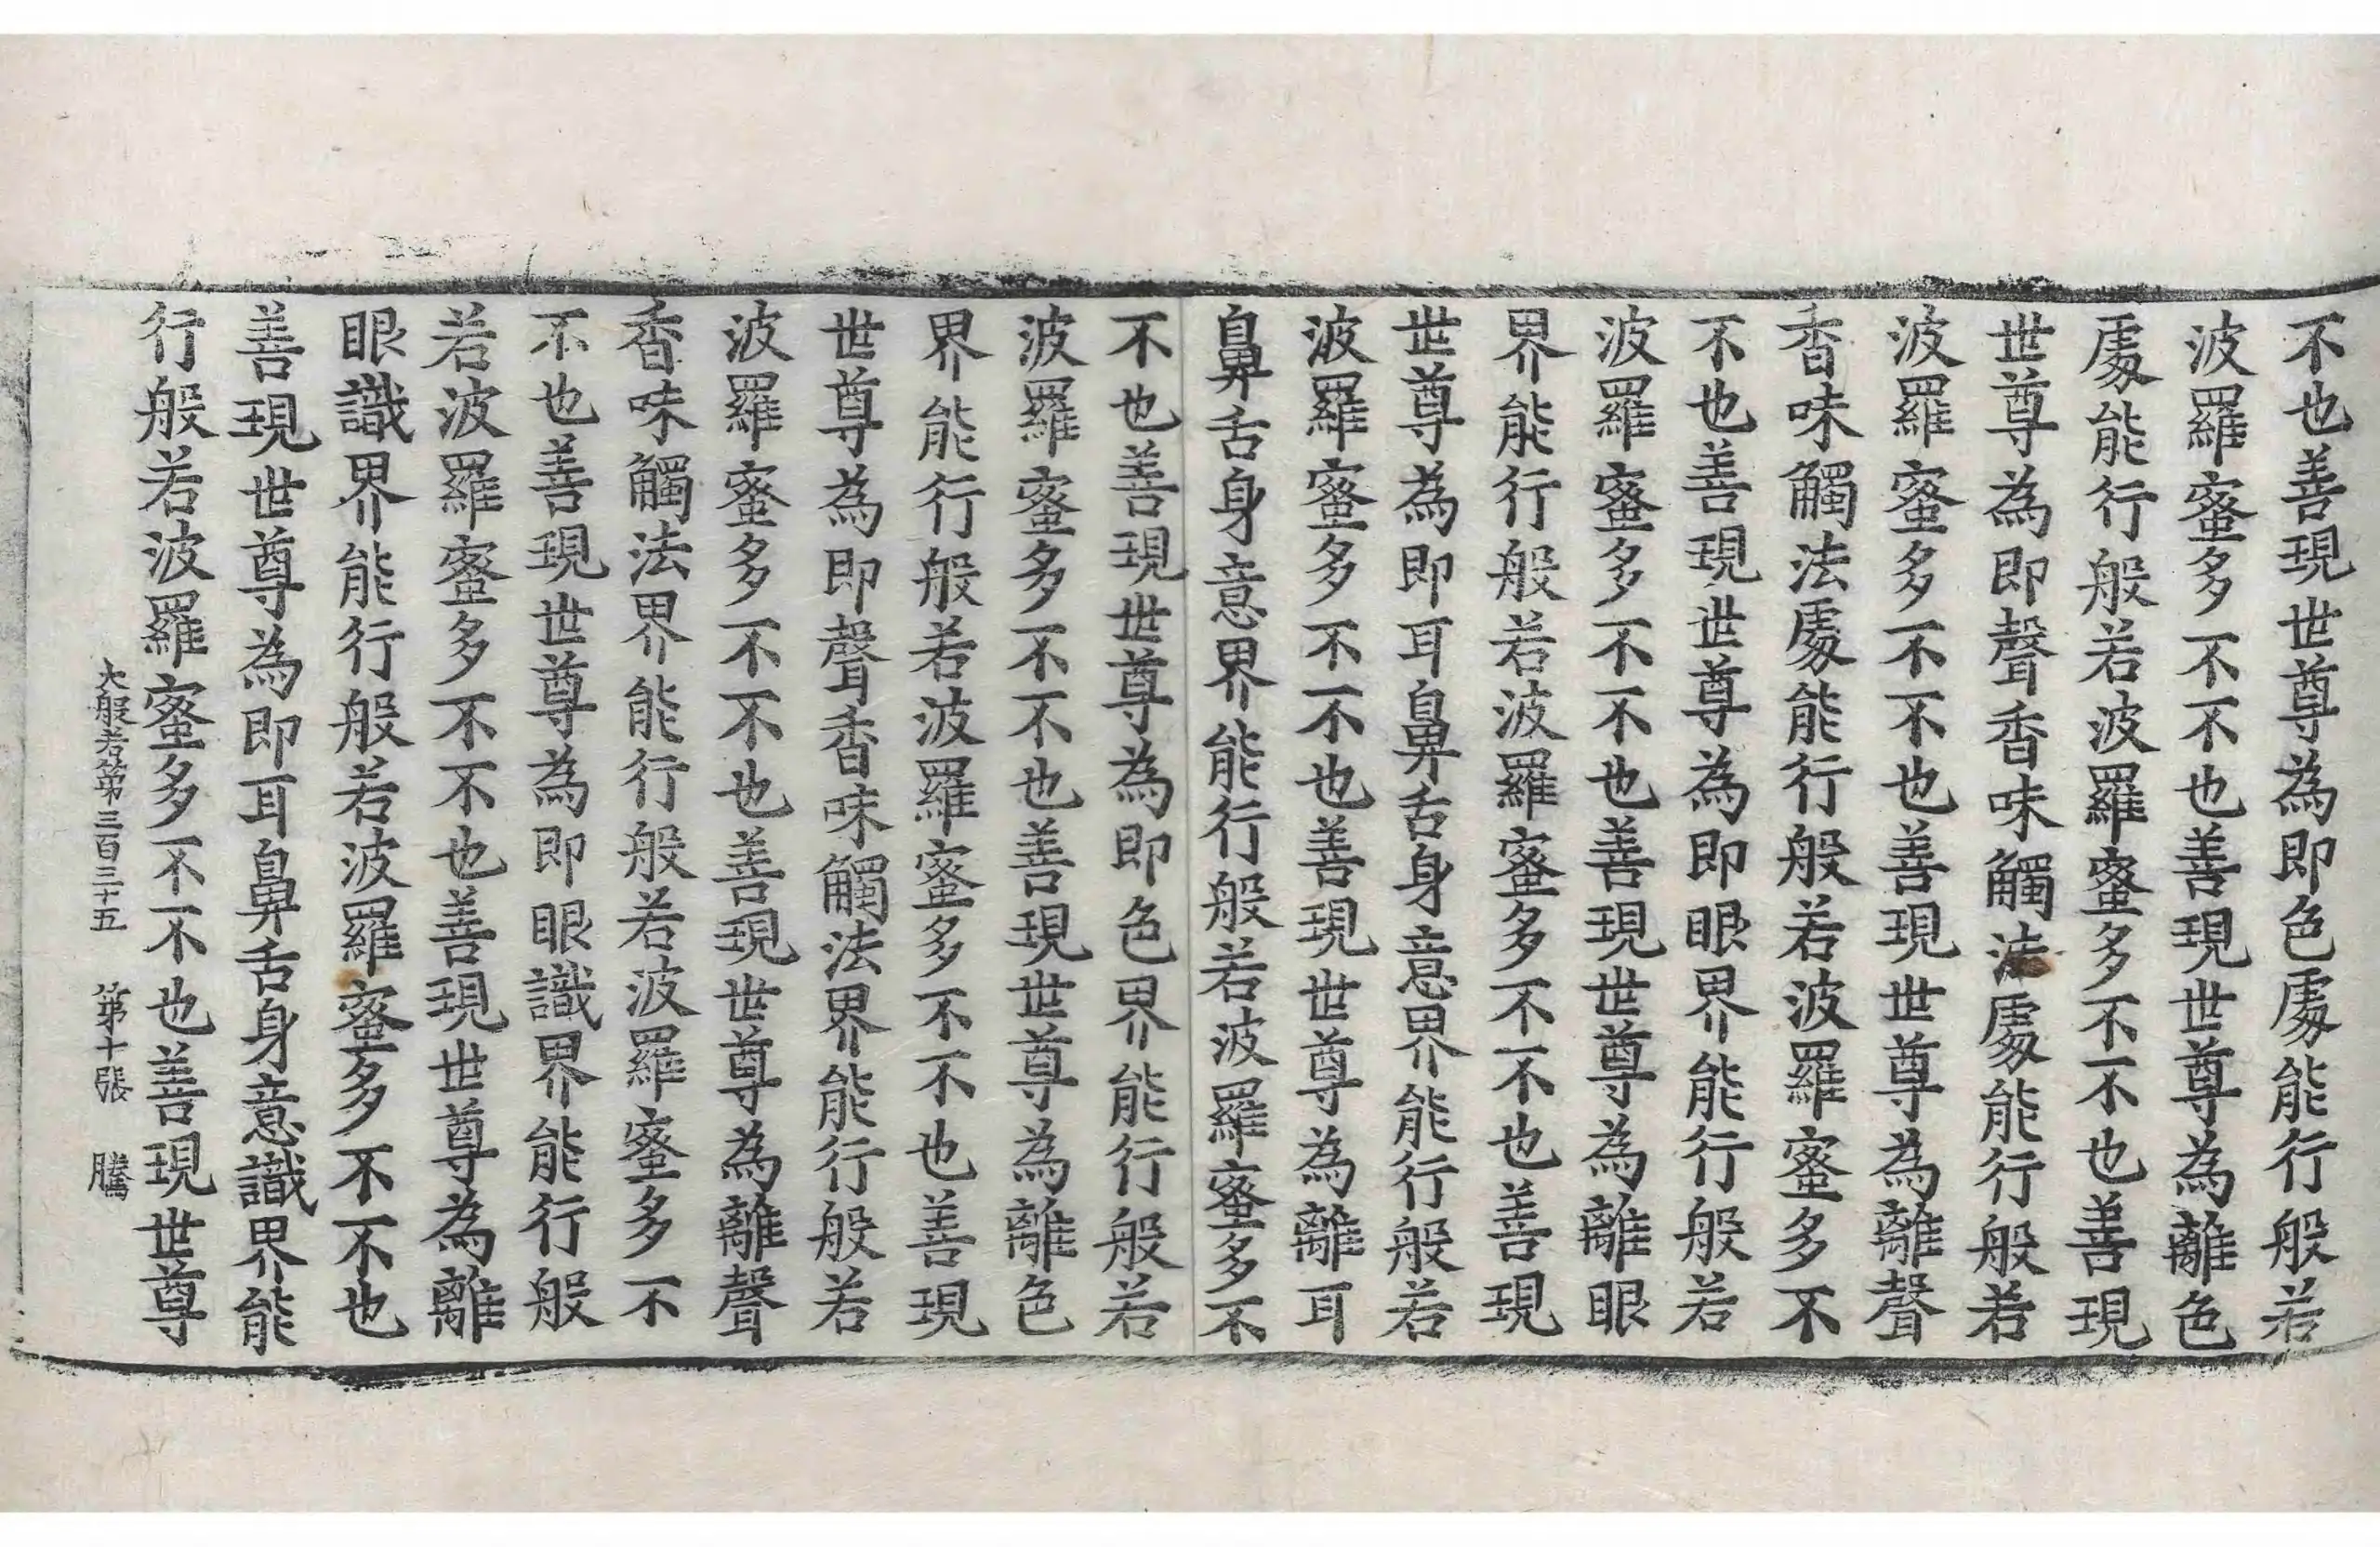 不也善現世尊為即色處能行般若
波羅蜜多不不也善現世尊為離色
處能行般若波羅蜜多不不也善現
世尊為即聲香味觸法處能行般若
波羅蜜多不不也善現世尊為離聲
香味觸法處能行般若波羅蜜多不
不也善現世尊為即眼界能行般若
波羅蜜多不不也善現世尊為離眼
界能行般若波羅蜜多不不也善現
世尊為即耳鼻舌身意界能行般若
波羅蜜多不不也善現世尊為離耳
鼻舌身意界能行般若波羅蜜多不
不也善現世尊為即色界能行般若
波羅蜜多不不也善現世尊為離色
界能行般若波羅蜜多不不也善現
世尊為即聲香味觸法界能行般若
波羅蜜多不不也善現世尊為離聲
香味觸法界能行般若波羅蜜多不
不也善現世尊為即眼識界能行般
若波羅蜜多不不也善現世尊為離
眼識界能行般若波羅蜜多不不也
善現世尊為即耳鼻舌身意識界能
行般若波羅蜜多不不也善現世尊
大般若第三百三十五 第十張 騰